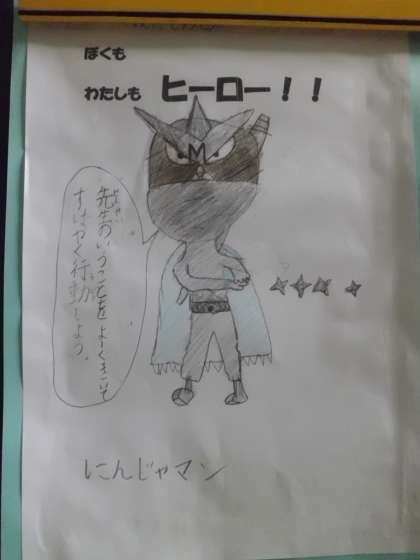 ぼくも
わたしも ヒーロー！！
M
先生のいうことをよーくきいて
すばやく行動しよう。
にんじゃマン